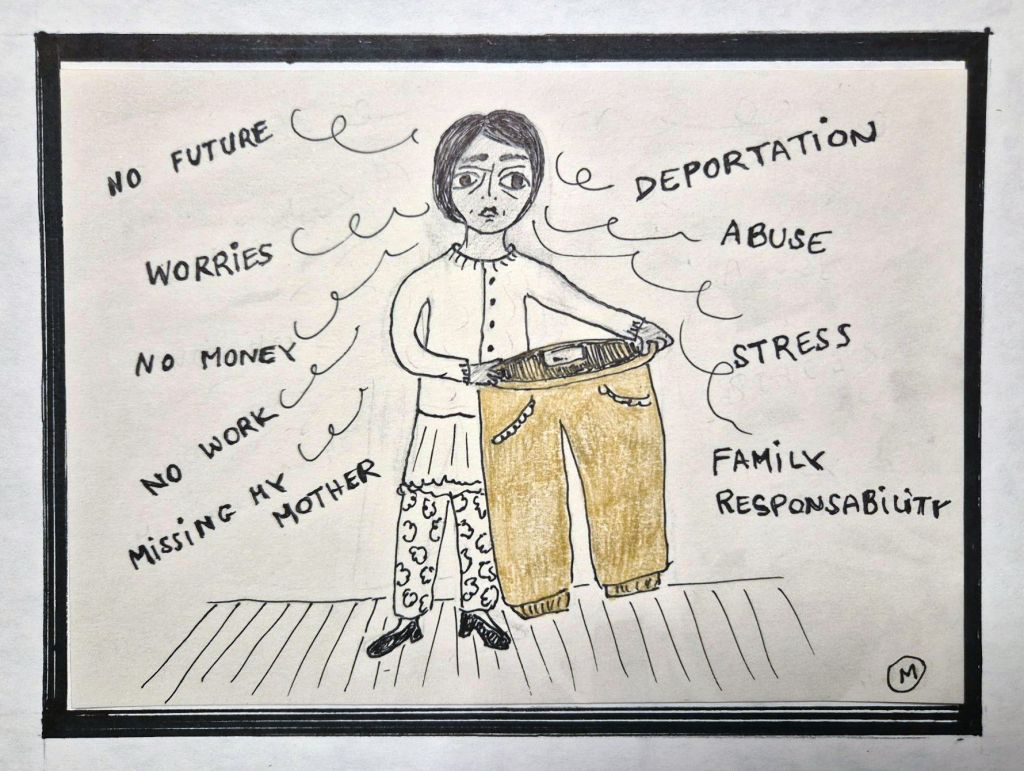 NO FUTURE
WORRIES
NO MONEY
NO WORK
MISSING MY
MOTHER
DEPORTATION
ABUSE
STRESS
FAMILY
RESPONSABILITY
M